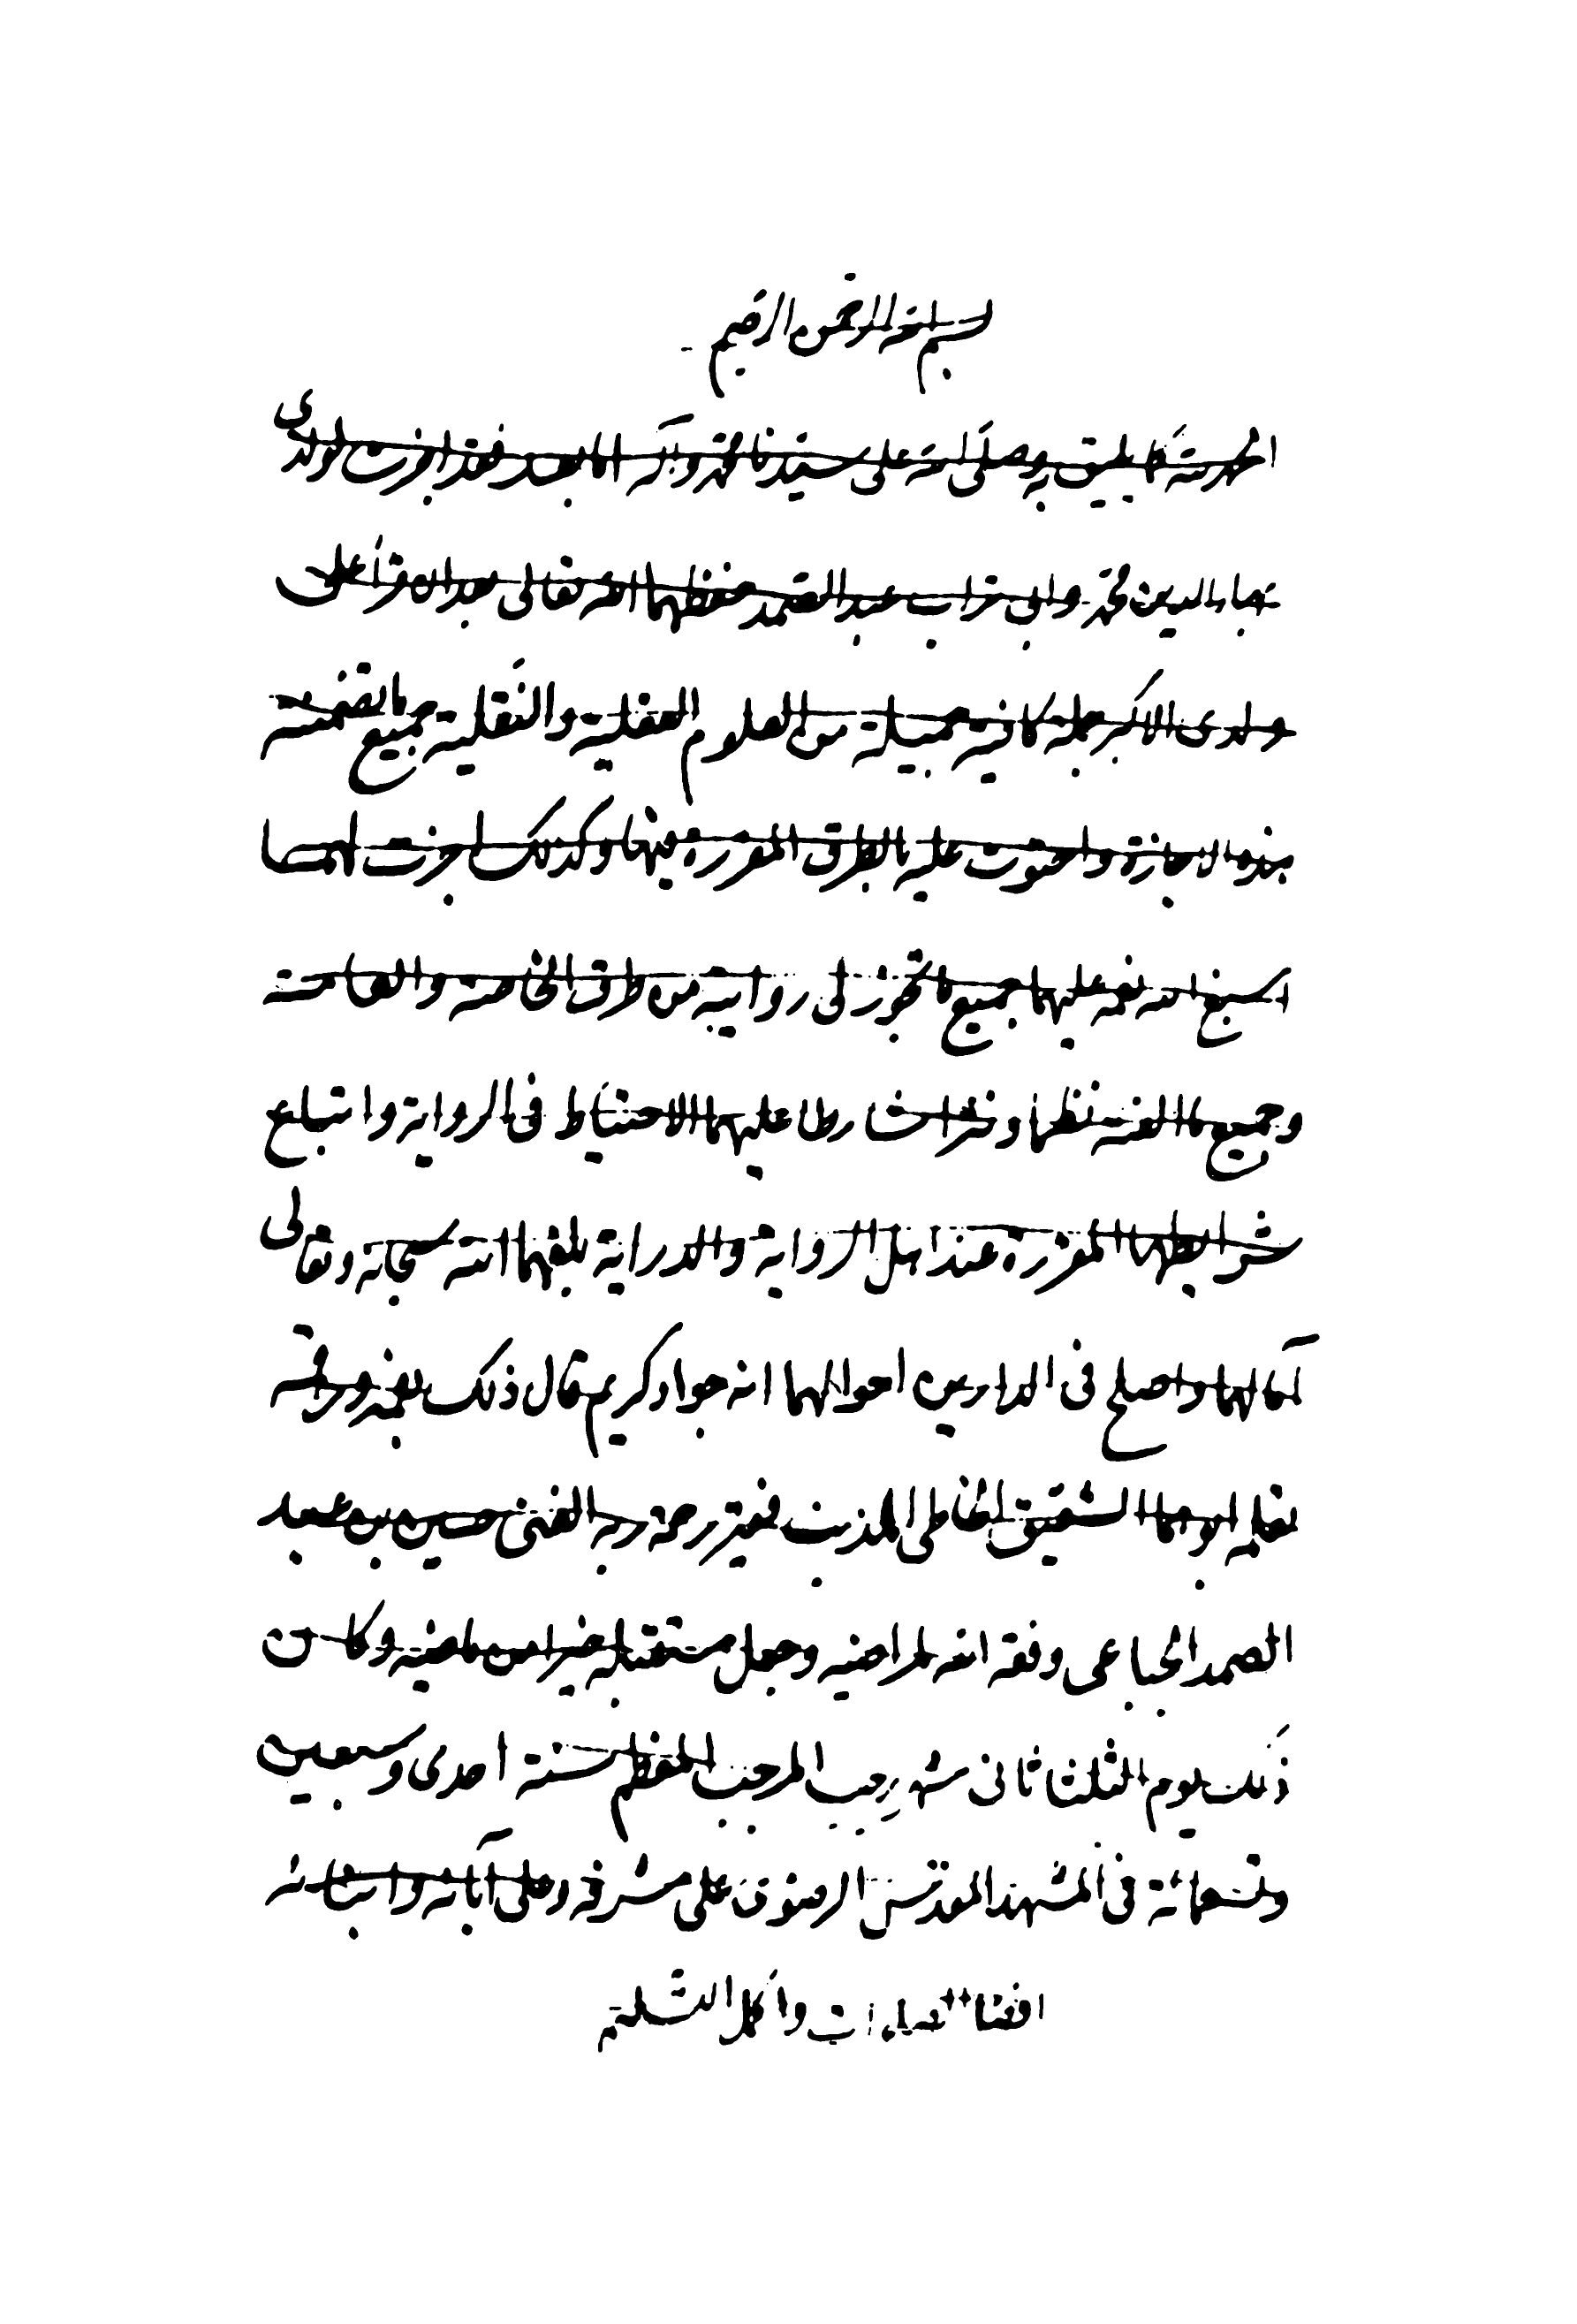 بسم الله الرحمن الرحيم
الحمد لله كما يليق به وصلى الله على سيدنا محمد وآله اما بعد فقد اجزت لولدي
بهاء الدين محمد وابي تراب عبد الصمد حفظهما الله تعالى بعد ان قرأ علي
ولدي الاكبر جملة كافية جميلة من العلوم العقلية والنقلية جميع ما تضمنته
هذه الاجازة واحتوت عليه بالطرق المقررة فيها وكذلك اجزت لهما
اسبغ الله نعمه عليهما جميع ما تجوز لي روايته من طرق الخاصة والعامة
وجميع ما الفته نظما ونثرا شارطا عليهما الاحتياط في الرواية واتباع
شرايطها المقررة عند اهل الرواية والدراية بلغهما الله سبحانه وتعالى
آمالهما واصلح في الدارين احوالهما انه جواد كريم قال ذلك بفمه ورقمه
بقلمه ابوهما الشفيق الخاطي المذنب فقير رحمة ربه الغني حسين بن عبد
الصمد الجباعي وفقه الله لمراضيه وجعل مستقبله خيرا من ماضيه وكان
ذلك يوم الثلثا ثاني شهر رجب المرجب المعظم سنة احدى وسبعين
وتسعمائة في المشهد المقدس الرضوي على مشرفه وعلى آبائه وابنائه
افضل الصلوات واكمل التسليم